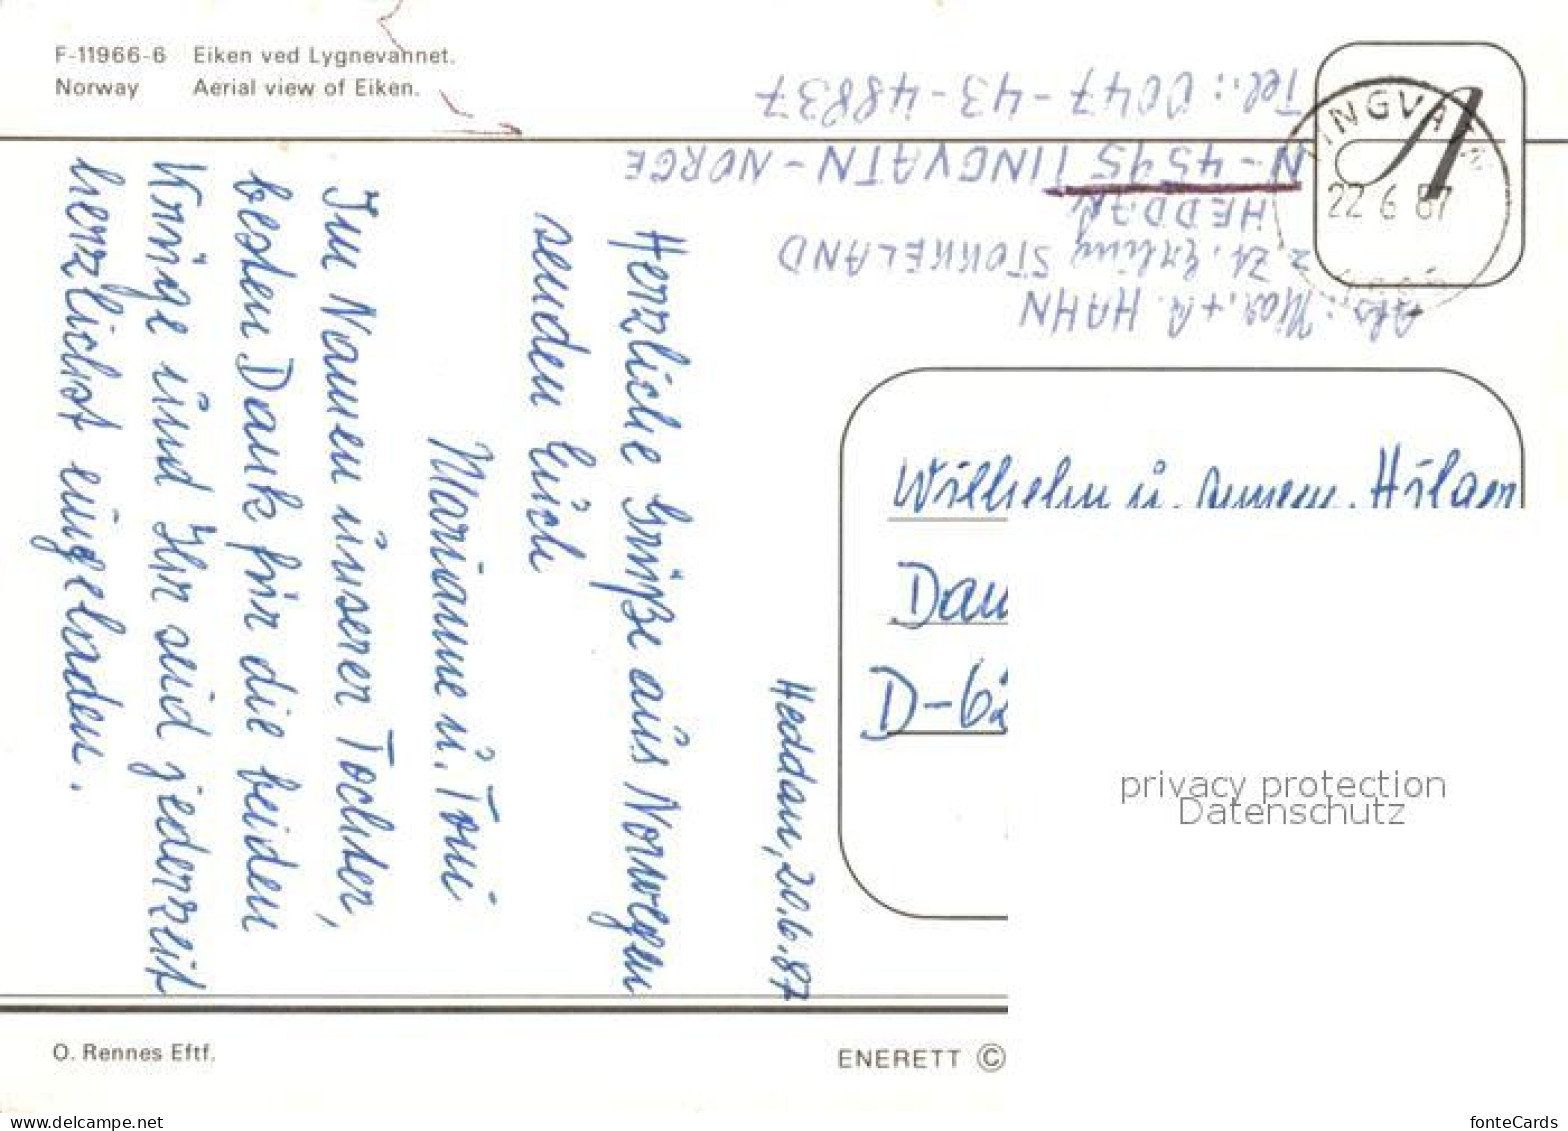 F-11966-6 Eiken ved Lygnevannet.
Norway Aerial view of Eiken.
Tel.: 0047-43-48837
N-4595 TINGVATN-NORGE
HEDDAN
z. Zt. Erling STOKKELAND
Abs.: Mar.+A. HAHN
TINGVATN
22 6 87
Heddan, 20.6.87
Herzliche Grüße aus Norwegen
senden Euch
Marianne u. Toni
Im Namen unserer Tochter,
besten Dank für die beiden
Kringe und Ihr seid jederzeit
herzlichst eingeladen.
Wilhelm u.
Dau
D-62
privacy protection
Datenschutz
O. Rennes Eftf.
ENERETT ©
www.delcampe.net
fonteCards